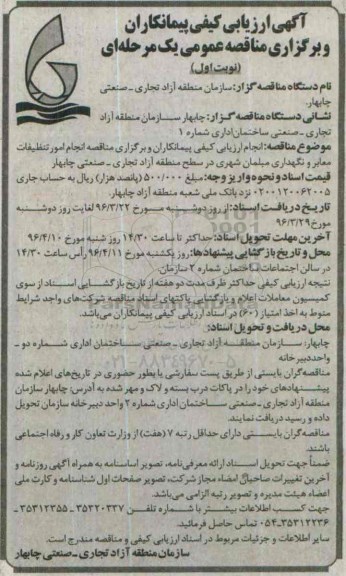 آگهی ارزیابی کیفی پیمانکاران
و برگزاری مناقصه عمومی یک مرحله‌ای
(نوبت اول)
نام دستگاه مناقصه گزار: سازمان منطقه آزاد تجاری ـ صنعتی
چابهار.
نشانی دستگاه مناقصه گزار: چابهار سازمان منطقه آزاد
تجاری ـ صنعتی ساختمان اداری شماره ۱
موضوع مناقصه: انجام ارزیابی کیفی پیمانکاران و برگزاری مناقصه انجام امور تنظیفات
معابر و نگهداری مبلمان شهری در سطح منطقه آزاد تجاری ـ صنعتی چابهار
قیمت اسناد و نحوه واریز وجه: مبلغ ۵۰۰/۰۰۰ (پانصد هزار) ریال به حساب جاری
۰۲۰۰۱۲۰۰۶۲۰۰۵ نزد بانک ملی شعبه منطقه آزاد چابهار.
تاریخ دریافت اسناد: از روز دوشنبه مورخ ۹۶/۳/۲۲ لغایت روز دوشنبه
مورخ ۹۶/۳/۲۹
آخرین مهلت تحویل اسناد: حداکثر تا ساعت ۱۴/۳۰ روز شنبه مورخ ۹۶/۴/۱۰
محل و تاریخ بازگشایی پیشنهادها: روز یکشنبه مورخ ۹۶/۴/۱۱ رأس ساعت ۱۴/۳۰
در سالن اجتماعات ساختمان شماره ۲ سازمان.
نتیجه ارزیابی کیفی حداکثر ظرف مدت دو هفته از تاریخ بازگشایی اسناد از سوی
کمیسیون معاملات اعلام و بازگشایی پاکتهای اسناد مناقصه شرکت‌های واجد شرایط
منوط به اخذ امتیاز (۶۰) در اسناد ارزیابی کیفی پیمانکاران می‌باشد.
محل دریافت و تحویل اسناد:
چابهار، سازمان منطقه آزاد تجاری ـ صنعتی ساختمان اداری شماره دو ـ
واحد دبیرخانه
مناقصه‌گران بایستی از طریق پست سفارشی یا بطور حضوری در تاریخ‌های اعلام شده
پیشنهادهای خود را در پاکات درب بسته و لاک و مهر شده به آدرس: چابهار سازمان
منطقه آزاد تجاری ـ صنعتی ساختمان اداری شماره ۲ واحد دبیرخانه سازمان تحویل
داده و رسید دریافت نمایند.
مناقصه‌گران بایستی دارای حداقل رتبه ۷ (هفت) از وزارت تعاون کار و رفاه اجتماعی
باشند.
ضمناً جهت تحویل اسناد ارائه معرفی‌نامه، تصویر اساسنامه به همراه آگهی روزنامه و
آخرین تغییرات صاحبان امضاء مجاز شرکت، تصویر صفحات اول شناسنامه و کارت ملی
اعضاء هیئت مدیره و تصویر رتبه الزامی می‌باشد.
جهت کسب اطلاعات بیشتر با شماره تلفن ۳۵۳۲۰۳۳۷ ـ ۳۵۳۱۲۳۵۵ ـ
۰۵۴-۳۵۳۱۲۲۳۶ تماس حاصل فرمائید.
سایر اطلاعات و جزئیات مربوط در اسناد ارزیابی کیفی و مناقصه مندرج است.
سازمان منطقه آزاد تجاری ـ صنعتی چابهار